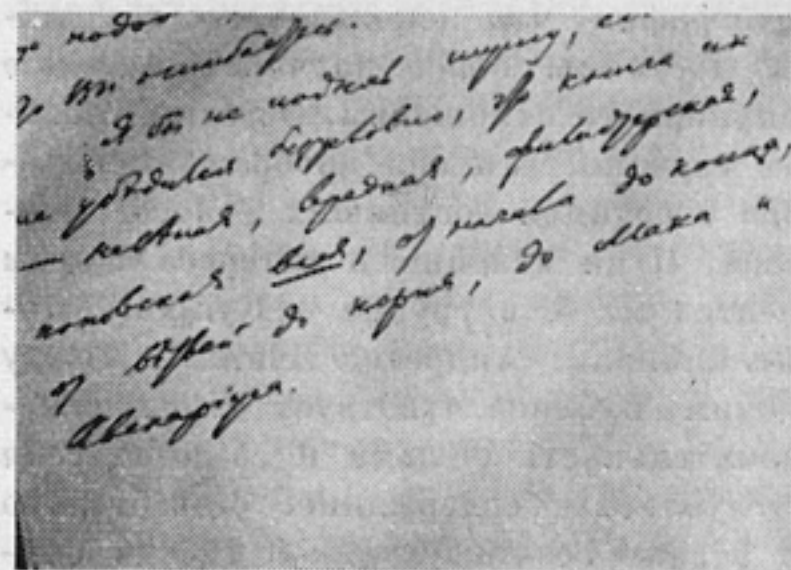 Вы ошибаетесь.
Я бы не поднял шуму,
не убѣдился безусловно, что книга их
— нелѣпая, вредная, филистерская,
поповская вся, от начала до конца,
от вѣтвей до корня, до Маха и
Авенаріуса.